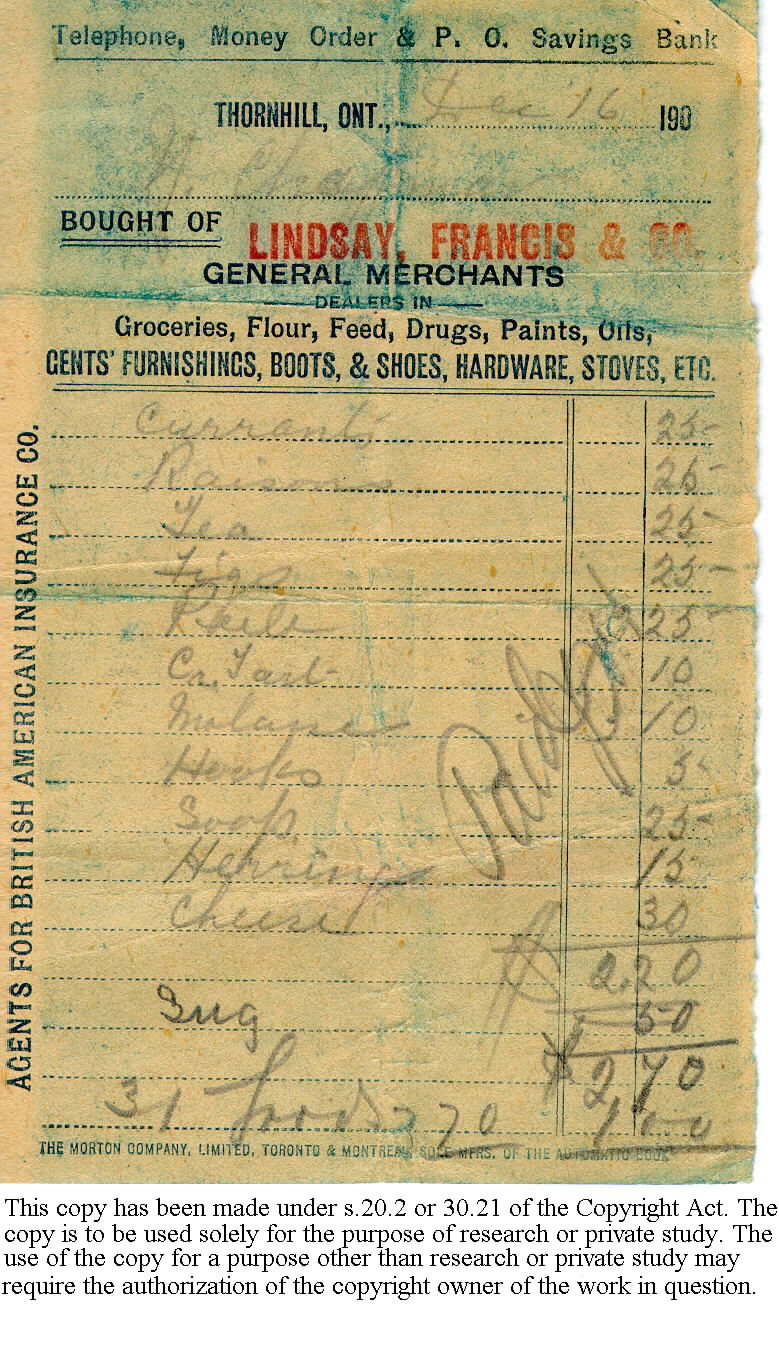 Telephone, Money Order & P. O. Savings Bank
THORNHILL, ONT., Dec 16 190
BOUGHT OF LINDSAY, FRANCIS & CO.
GENERAL MERCHANTS
DEALERS IN
Groceries, Flour, Feed, Drugs, Paints, Oils,
GENTS' FURNISHINGS, BOOTS, & SHOES, HARDWARE, STOVES, ETC.
AGENTS FOR BRITISH AMERICAN INSURANCE CO.
Currants 25
Raisons 25
Tea 25
Figs 25
25
Cr. Tart 10
10
Hooks 5
Soap 25
Herring 15
Cheese 30
Paid
$ 2.20
Sug 50
$ 2 70
31 270 1 00
THE MORTON COMPANY, LIMITED, TORONTO & MONTREAL, SOLE MFRS. OF THE AUTOMATIC BOOK
This copy has been made under s.20.2 or 30.21 of the Copyright Act. The
copy is to be used solely for the purpose of research or private study. The
use of the copy for a purpose other than research or private study may
require the authorization of the copyright owner of the work in question.